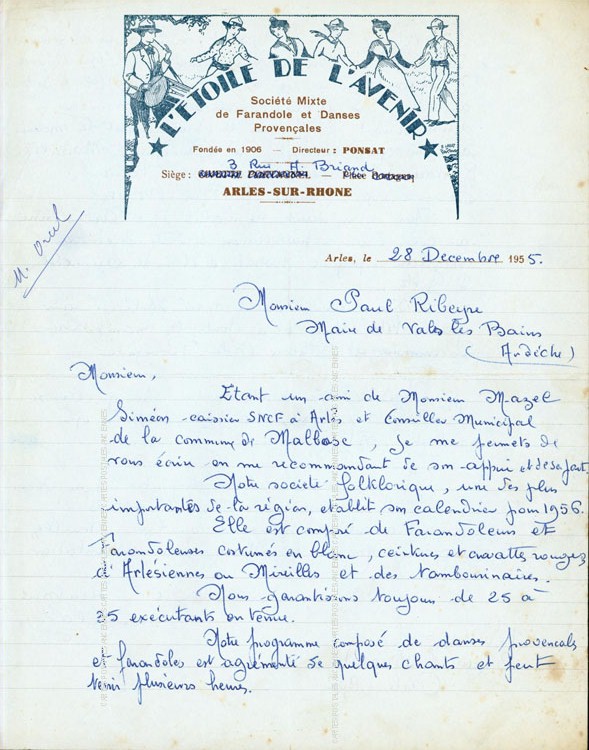 L'ETOILE DE L'AVENIR
Société Mixte
de Farandole et Danses
Provençales
Fondée en 1906 — Directeur : PONSAT
3 Rue A. Briand
Siège : — Place
ARLES-SUR-RHONE
M. Oral
Arles, le 28 Decembre 1955.
Monsieur Paul Ribeyre
Maire de Vals les Bains
(Ardèche)
Monsieur,
Etant un ami de Monsieur Mazel
Siméon caissier SNCF à Arles et Conseiller Municipal
de la commune de Malbosc, je me permets de
vous écrire en me recommandant de son appui et de sa part
Notre société folklorique, une des plus
importantes de la région, etablit son calendrier pour 1956.
Elle est composé de Farandoleurs et
Farandoleuses costumés en blanc, ceintures et cravattes rouges,
d'Arlésiennes ou Mireilles et des tambourinaires.
Nous garantissons toujours de 25 à
35 exécutants en tenue.
Notre programme composé de danses provencals
et farandoles est agrémenté de quelques chants et peut
tenir plusieurs heures.